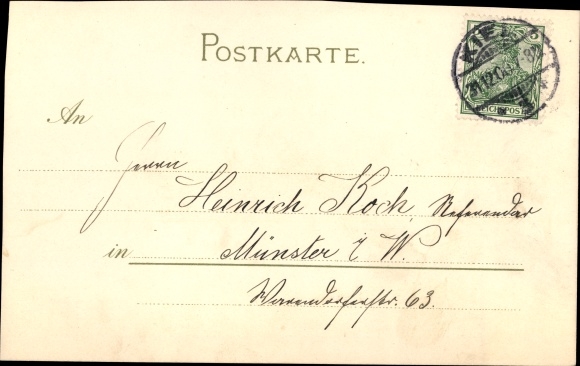 POSTKARTE.
KIEL
REICHSPOST
An
Herrn
Heinrich Koch, Referendar
in Münster i W.
Warendorferstr. 63.